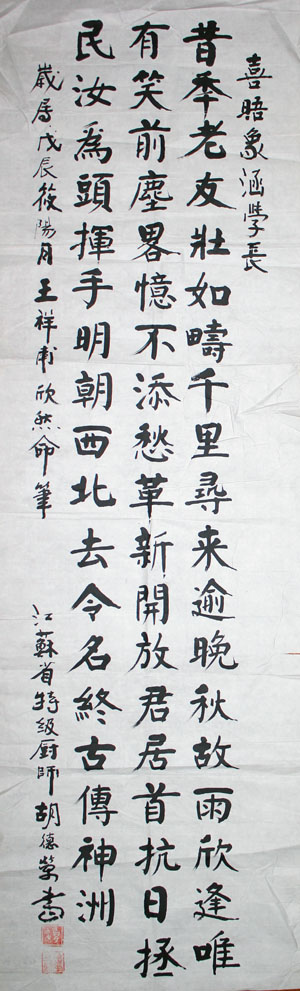 喜晤象涵學長
昔季老友壯如疇千里尋来逾晚秋故雨欣逢唯
有笑前塵畧憶不添愁革新開放君居首抗日拯
民汝為頭揮手明朝西北去令名終古傳神洲
歲居戊辰筱陽月王祥甫欣然命筆
江蘇省特级厨師胡德榮書